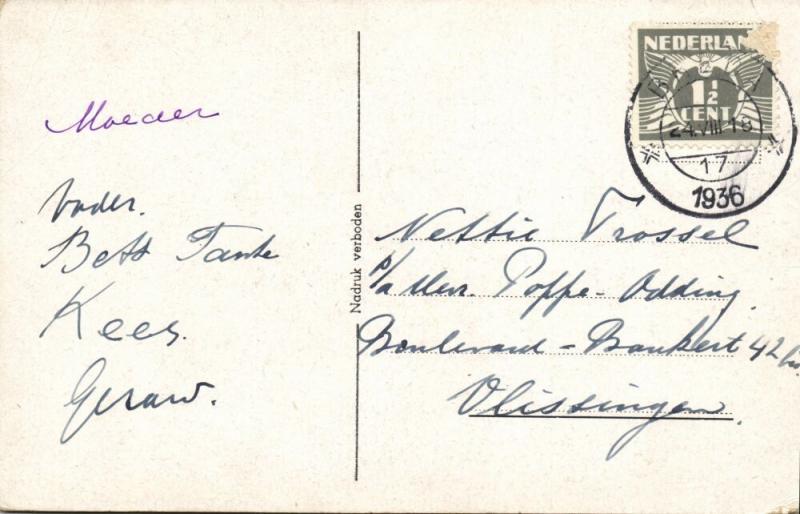 Moeder
Vader.
Bets Tante
Kees.
Gerard.
Nadruk verboden
NEDERLAND
1½
CENT
24.VIII 18
17
1936
Nettie Trossel
p/a Mevr. Poppe-Odding
Boulevard-Bankert 42
Vlissingen.